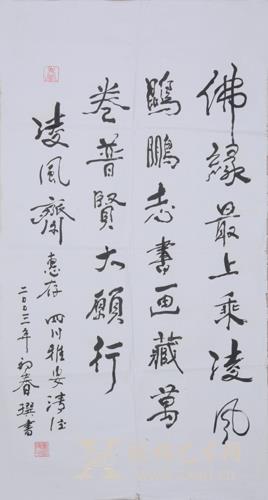 佛緣最上乘凌風
鵬志書画藏萬
卷普賢大願行
凌風齋惠存 四川雅安
二〇〇三年初春 撰書